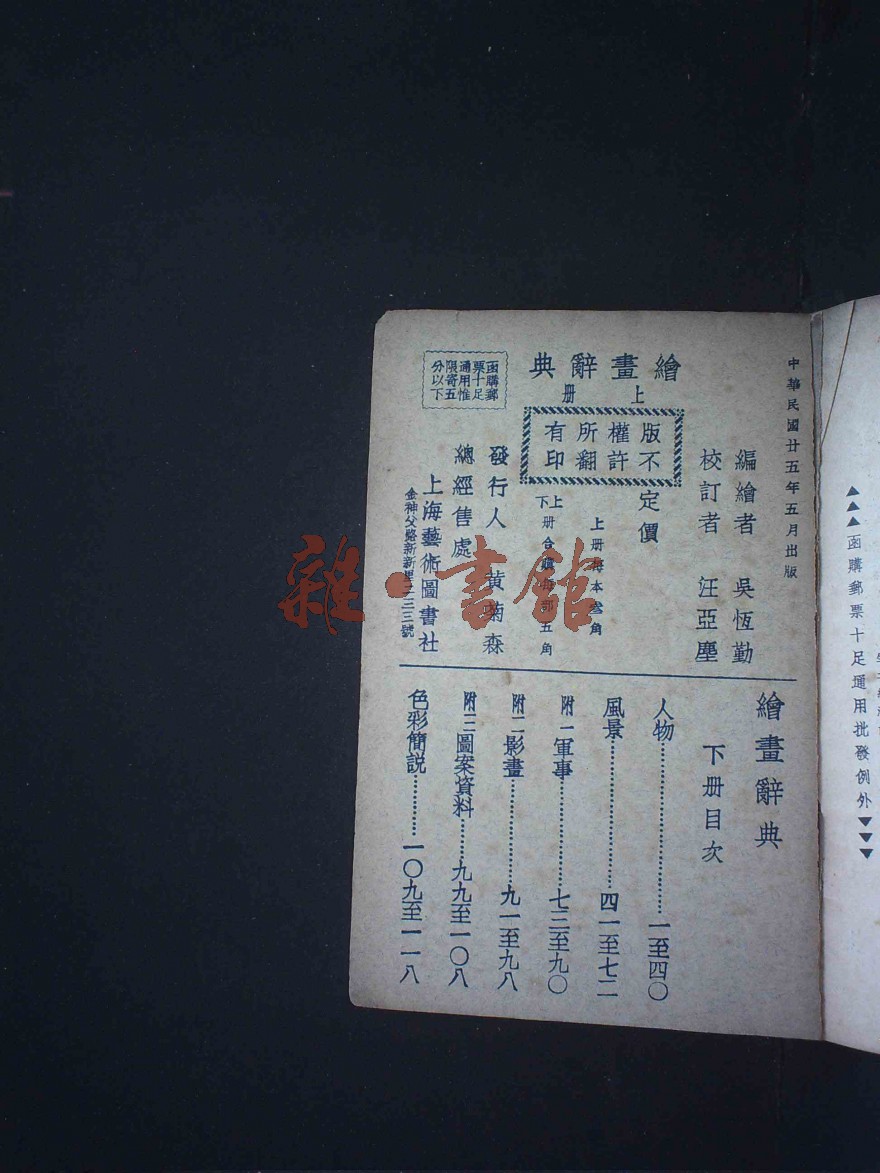 中華民國廿五年五月出版
繪畫辭典
上册
編繪者　吳恆勤
校訂者　汪亞塵
版權所有
不許翻印
定價
上册本角
上下册合五角
發行人　黄菊森
總經售處
上海藝術圖書社
金神父路新新里二三三號
函購郵
票十足
通用惟
限寄五
分以下
繪畫辭典
下册目次
人物…………一至四〇
風景…………四一至七二
附一軍事…………七三至九〇
附二影畫…………九一至九八
附三圖案資料…………九九至一〇八
色彩簡説…………一〇九至一一八
▲▲▲函購郵票十足通用批發例外▼▼▼
雜·書館